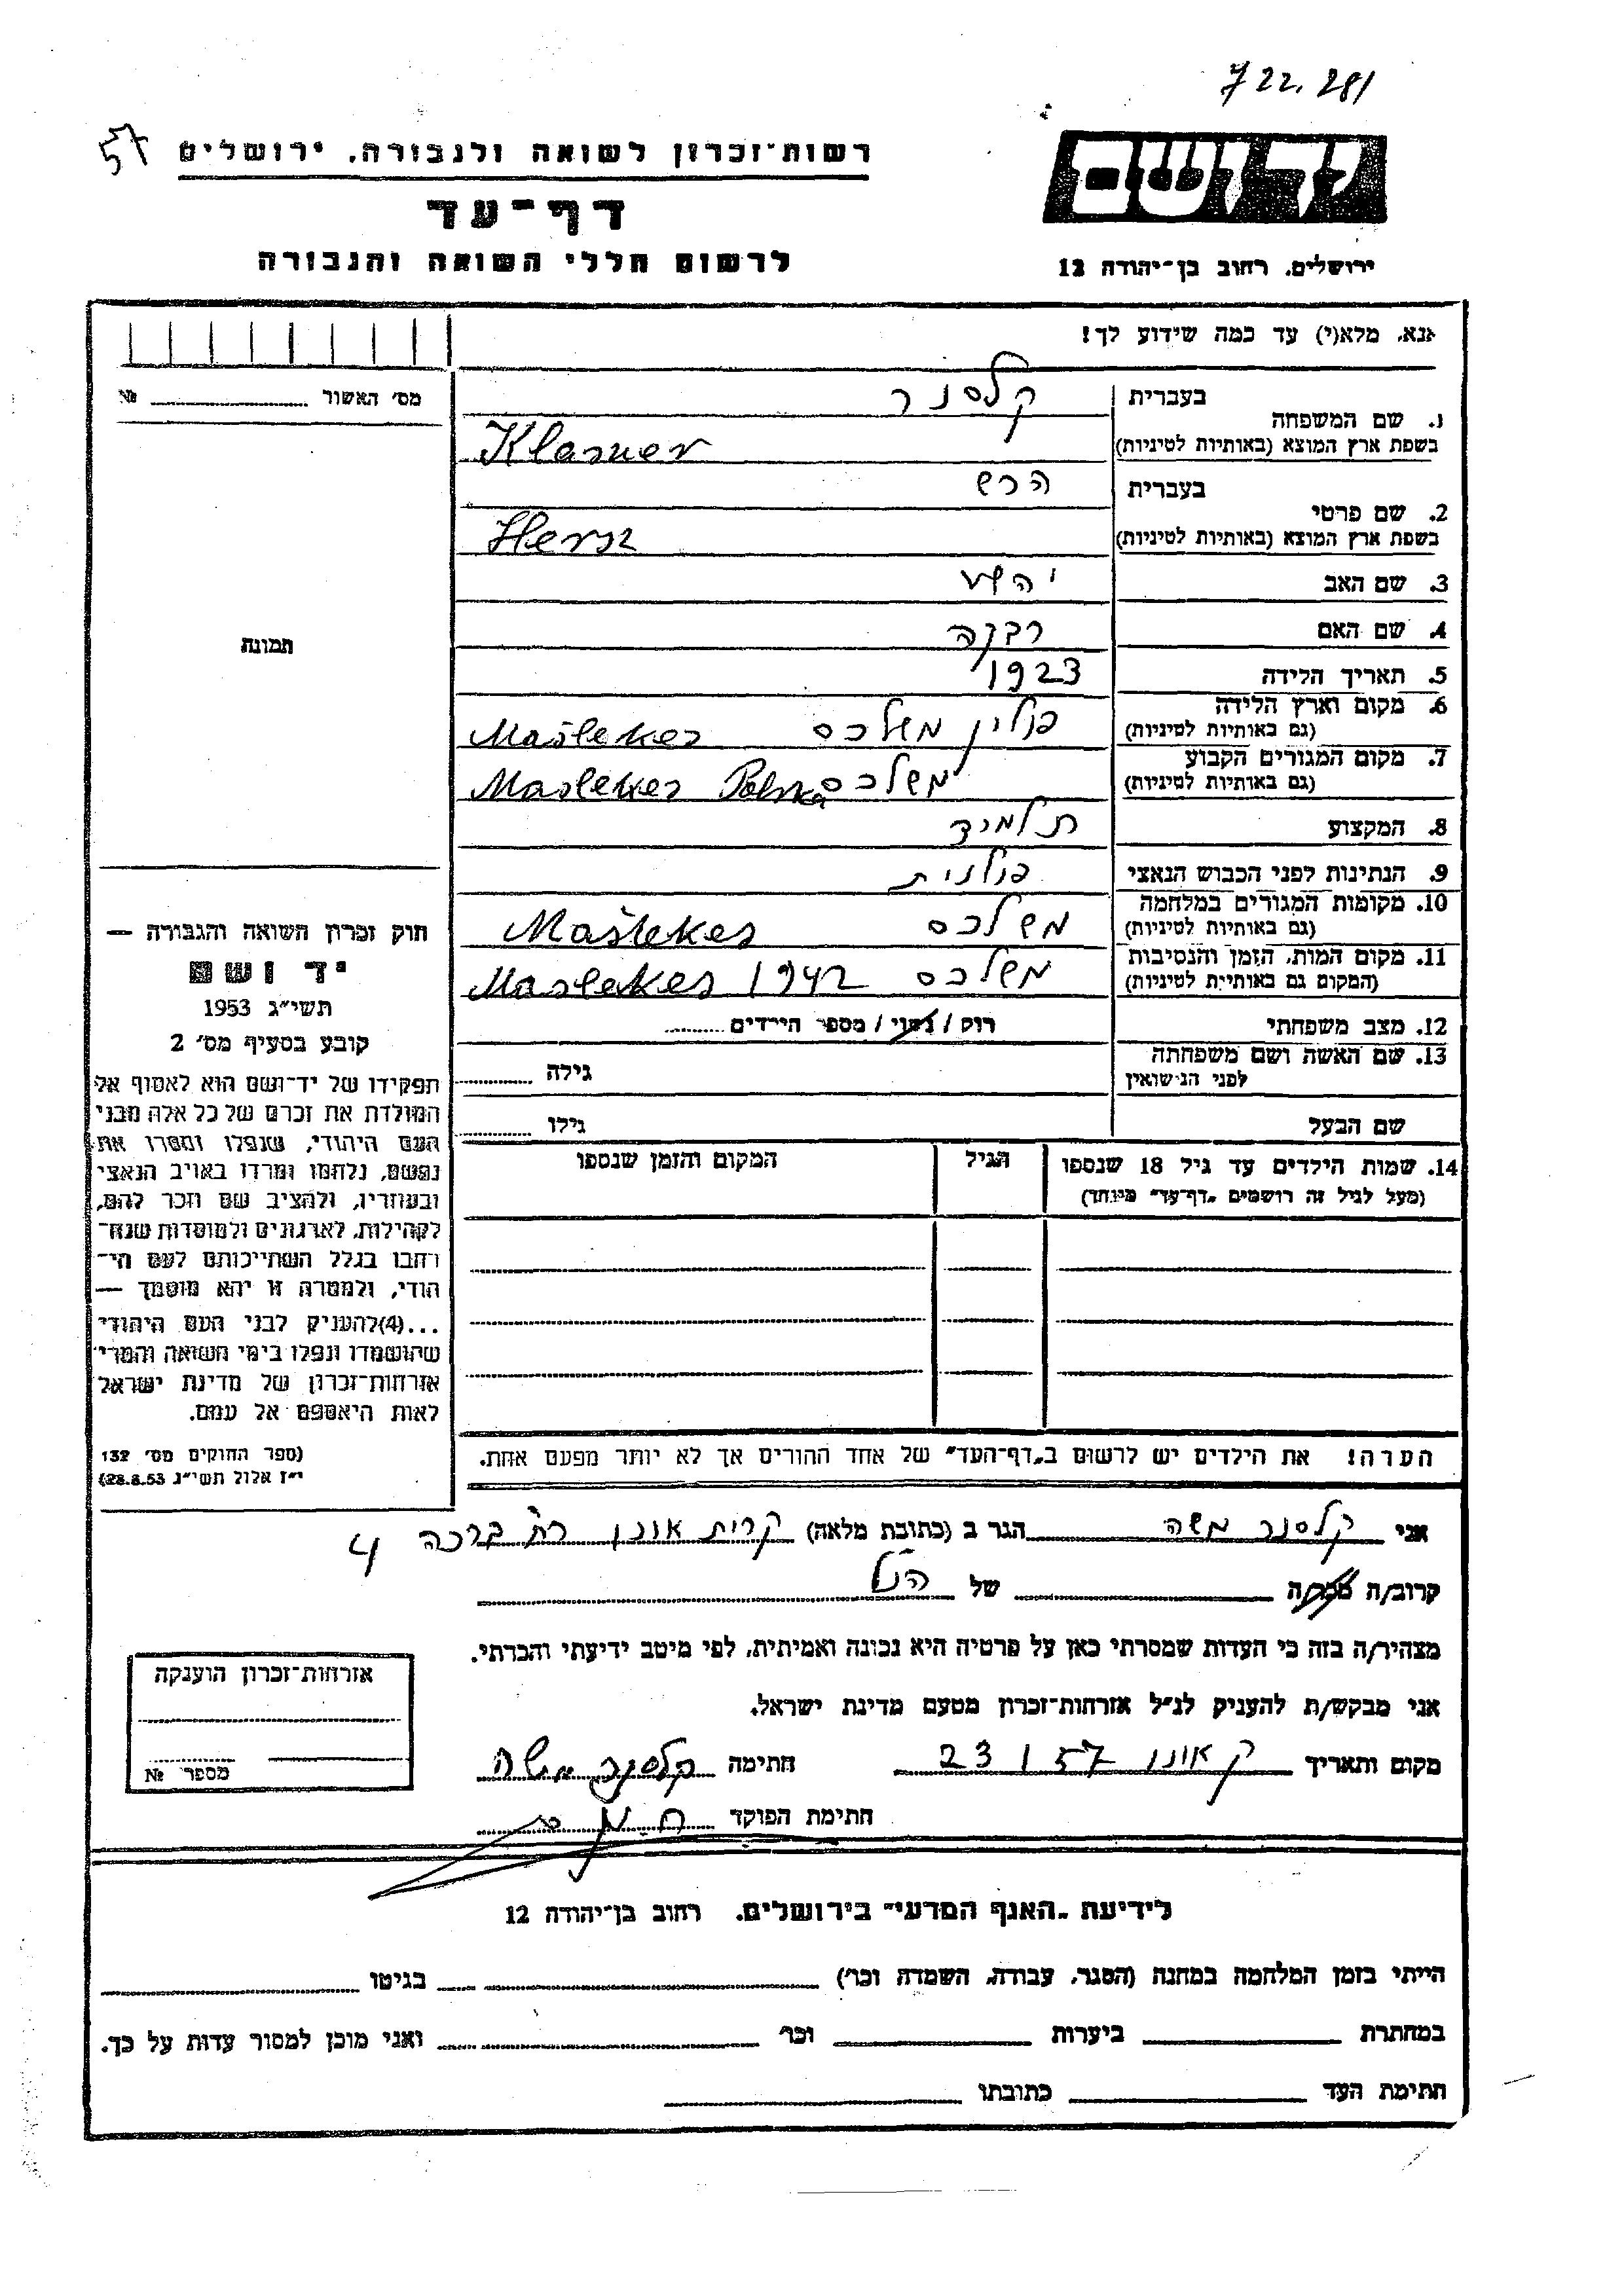 722.281
57
רשות-זכרון לשואה ולגבורה, ירושלים
דף-עד
לרשום חללי השואה והגבורה
יד ושם
ירושלים, רחוב בן-יהודה 12
אנא, מלא(י) עד כמה שידוע לך!
מס׳ האשור № 
1. שם המשפחה
בעברית קלסנר
בשפת ארץ המוצא (באותיות לטיניות) Klasner
2. שם פרטי
בעברית הרש
בשפת ארץ המוצא (באותיות לטיניות) Hersz
3. שם האב
4. שם האם רבקה
5. תאריך הלידה 1923
6. מקום וארץ הלידה (גם באותיות לטיניות) פולין משלכס Maślekes
7. מקום המגורים הקבוע (גם באותיות לטיניות) משלכס Maslekes Polska
8. המקצוע תלמיד
9. הנתינות לפני הכבוש הנאצי פולנית
10. מקומות המגורים במלחמה (גם באותיות לטיניות) משלכס Maślekes
11. מקום המות, הזמן והנסיבות (המקום גם באותיות לטיניות) משלכס 1942 Maslekes
12. מצב משפחתי רוק / נשוי / מספר הילדים
13. שם האשה ושם משפחתה לפני הנישואין גילה
שם הבעל גילו
14. שמות הילדים עד גיל 18 שנספו
(מעל לגיל זה רושמים „דף-עד" מיוחד)
הגיל
המקום והזמן שנספו
הערה! את הילדים יש לרשום ב„דף-העד" של אחד ההורים אך לא יותר מפעם אחת.
תמונה
חוק זכרון השואה והגבורה —
יד ושם
תשי״ג 1953
קובע בסעיף מס׳ 2
תפקידו של יד-ושם הוא לאסוף אל
המולדת את זכרם של כל אלה מבני
העם היהודי, שנפלו ומסרו את
נפשם, נלחמו ומרדו באויב הנאצי
ובעוזריו, ולהציב שם וזכר להם,
לקהילות, לארגונים ולמוסדות שנח-
רחבו בגלל השתייכותם לעם הי-
הודי, ולמטרה זו יהא מוסמך —
...(4)להעניק לבני העם היהודי
שהושמדו ונפלו בימי השואה והמרי
אזרחות-זכרון של מדינת ישראל
לאות היאספם אל עמם.
(ספר החוקים מס׳ 132
י״ז אלול תשי״ג 28.8.53)
אני קלסנר משה הגר ב (כתובת מלאה) קרית אונו רח׳ ברכה 4
קרוב/ה מכר/ה של הנ״ל
מצהיר/ה בזה כי העדות שמסרתי כאן על פרטיה היא נכונה ואמיתית, לפי מיטב ידיעתי והכרתי.
אני מבקש/ת להעניק לנ״ל אזרחות-זכרון מטעם מדינת ישראל.
מקום ותאריך ק אונו 23 1 57 חתימה קלסנר משה
חתימת הפוקד
אזרחות-זכרון הוענקה
מספר №
לידיעת „האגף המדעי" בירושלים, רחוב בן-יהודה 12
הייתי בזמן המלחמה במחנה (הסגר, עבודה, השמדה וכו׳) בגיטו
במחתרת ביערות וכו׳ ואני מוכן למסור עדות על כך.
חתימת העד כתובתו